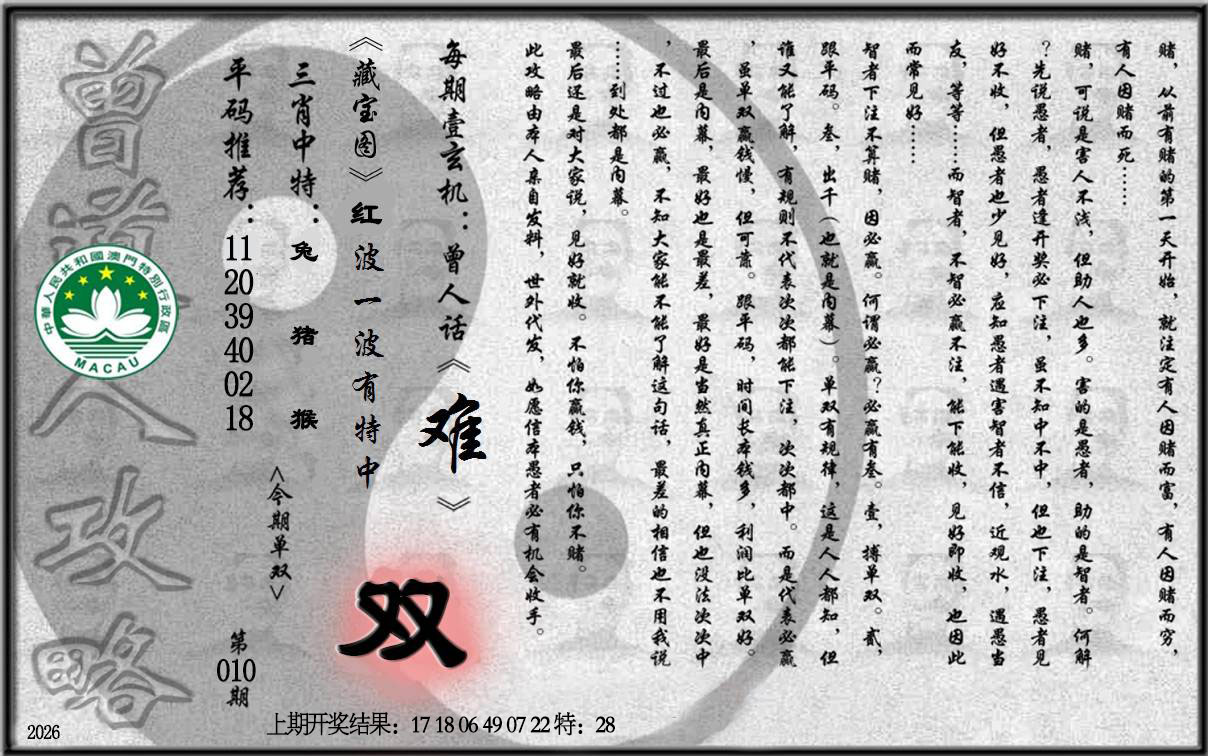 赌，从前有赌的第一天开始，就注定有人因赌而富，有人因赌而穷，
有人因赌而死……
赌，可说是害人不浅，但助人也多。害的是愚者，助的是智者。何解
？先说愚者，愚者逢开奖必下注，虽不知中不中，但也下注，愚者见
好不收，但愚者也少见好，应知愚者遇害智者不信，近观水，遇愚当
友，等等……而智者，不智必赢不注，能下能收，见好即收，也因此
而常见好……
智者下注不算赌，因必赢。何谓必赢？必赢有叁。壹，搏单双。贰，
跟平码。叁，出千（也就是内幕）。单双有规律，这是人人都知，但
谁又能了解，有规则不代表次次都能下注，次次都中。而是代表必赢
，虽单双赢钱慢，但可靠。跟平码，时间长本钱多，利润比单双好。
最后是内幕，最好也是最差，最好是当然真正内幕，但也没法次次中
，不过也必赢，不知大家能不能了解这句话，最差的相信也不用我说
……到处都是内幕。
最后还是对大家说，见好就收。不怕你赢钱，只怕你不赌。
此攻略由本人亲自发料，世外代发，如愿信本愚者必有机会收手。
每期壹玄机：曾人话《难》
《藏宝图》红波一波有特中
双
三肖中特：兔 猪 猴
<今期单双>
平码推荐：11 20 39 40 02 18
第010期
曾道人攻略
中華人民共和國澳門特別行政區
MACAU
上期开奖结果：17 18 06 49 07 22 特：28
2026